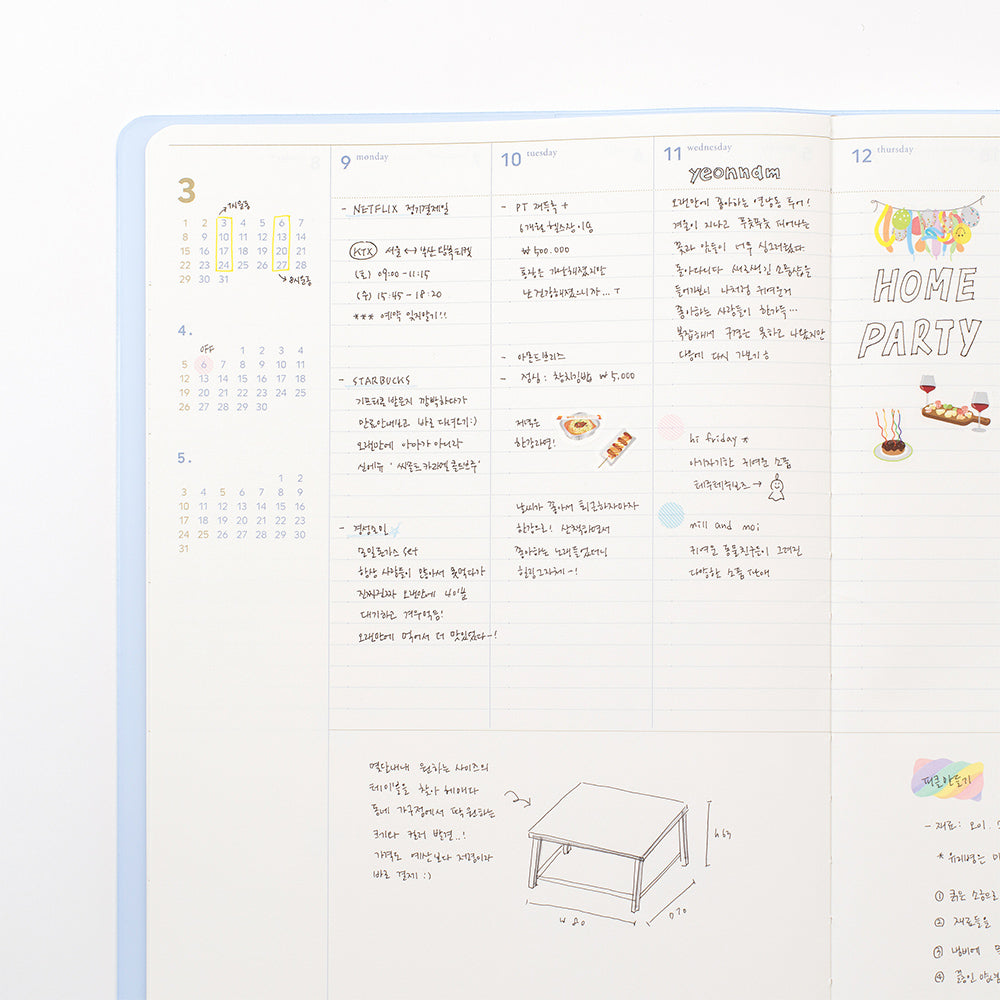 3
7시운동
1 2 3 4 5 6 7
8 9 10 11 12 13 14
15 16 17 18 19 20 21
22 23 24 25 26 27 28
29 30 31
8시운동
4.
OFF
1 2 3 4
5 6 7 8 9 10 11
12 13 14 15 16 17 18
19 20 21 22 23 24 25
26 27 28 29 30
5.
1 2
3 4 5 6 7 8 9
10 11 12 13 14 15 16
17 18 19 20 21 22 23
24 25 26 27 28 29 30
31
9 monday
- NETFLIX 정기결제일
KTX 서울 ↔ 부산
(토) 09:00 - 11:15
(수) 15:45 - 18:20
*** 예약 잊지말기!!
- STARBUCKS
기프티콘 받은지 깜박하다가
만료안내나고 바로 다녀오기:)
오랜만에 아아가 아니라
- 경성호인
모밀돈가스 set
항상 사람들이 많아서 못먹다가
진짜진짜 오랜만에 40분
대기하고 겨우먹음!
오랜만에 먹어서 더 맛있었다~!
10 tuesday
- PT 재등록 +
6개월 헬스장 이용
₩ 500.000
통장은 가난해졌지만
난 건강해졌으니까... T
- 아몬드브리즈
- 점심: 참치김밥 ₩ 5,000
저녁은
한강라면!
날씨가 좋아서 퇴근하자마자
한강으로! 산책하면서
좋아하는 노래들었더니
힐링그자체~!
11 wednesday
yeonnam
오랜만에 좋아하는 연남동 투어!
겨울이 지나고 푸릇푸릇 피어나는
꽃과 잎들이 너무 싱그러웠다
돌아다니다 새로생긴 소품샵을
들어가보니 나처럼 귀여운거
좋아하는 사람들이 한가득...
복잡해서 구경은 못하고 나왔지만
다음에 다시 가보기
hi friday *
아기자기한 귀여운 소품
테루테루보즈 →
mill and moi
귀여운 동물친구들이 그려진
다양한 소품 판매
12 thursday
HOME
PARTY
몇달내내 원하는 사이즈의
테이블을 찾아 헤매다
동네 가구점에서 딱 원하는
크기와 컬러 발견..!
가격도 예산보다 저렴이라
바로 결제 :)
h 63
W 80
D 70
피클만들기
- 재료: 오이,
* 유리병은
① 굵은 소금으로
② 재료들을
③ 냄비에
④ 끓인